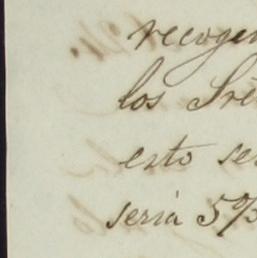 recoger
los Sre
esto se
seria 5%